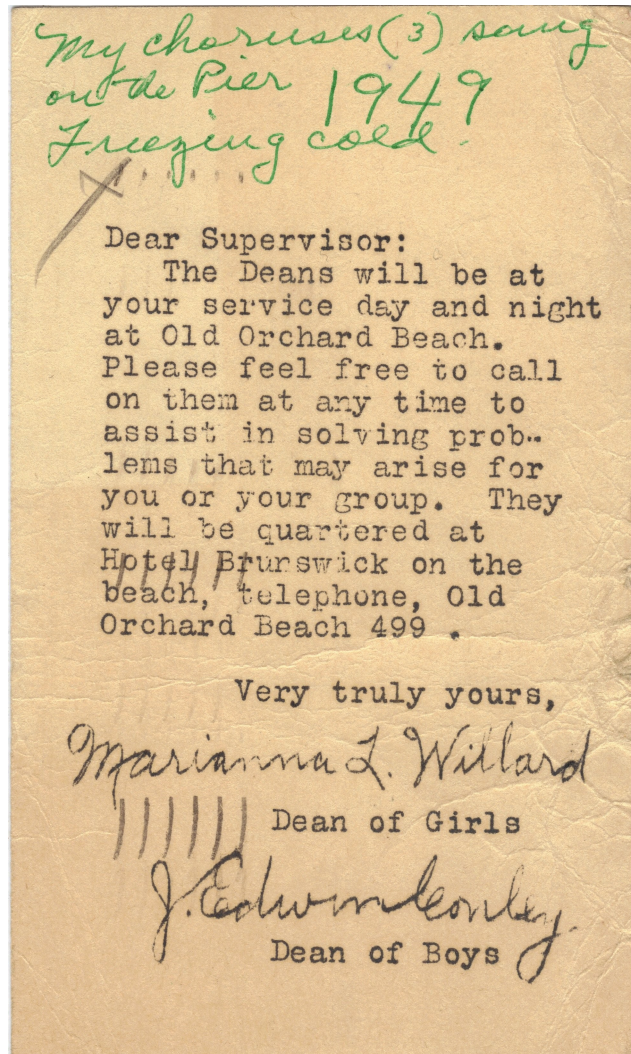 My choruses (3) sang
on the Pier 1949
Freezing cold.
Dear Supervisor:
The Deans will be at
your service day and night
at Old Orchard Beach.
Please feel free to call
on them at any time to
assist in solving prob-
lems that may arise for
you or your group. They
will be quartered at
Hotel Brunswick on the
beach, telephone, Old
Orchard Beach 499 .
Very truly yours,
Marianna L. Willard
Dean of Girls
J. Edwin Conley.
Dean of Boys